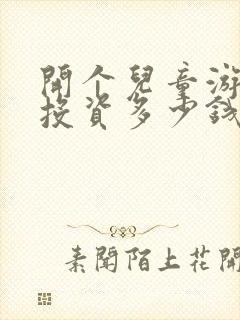 開个兒童游
投資多少錢
素聞陌上花開